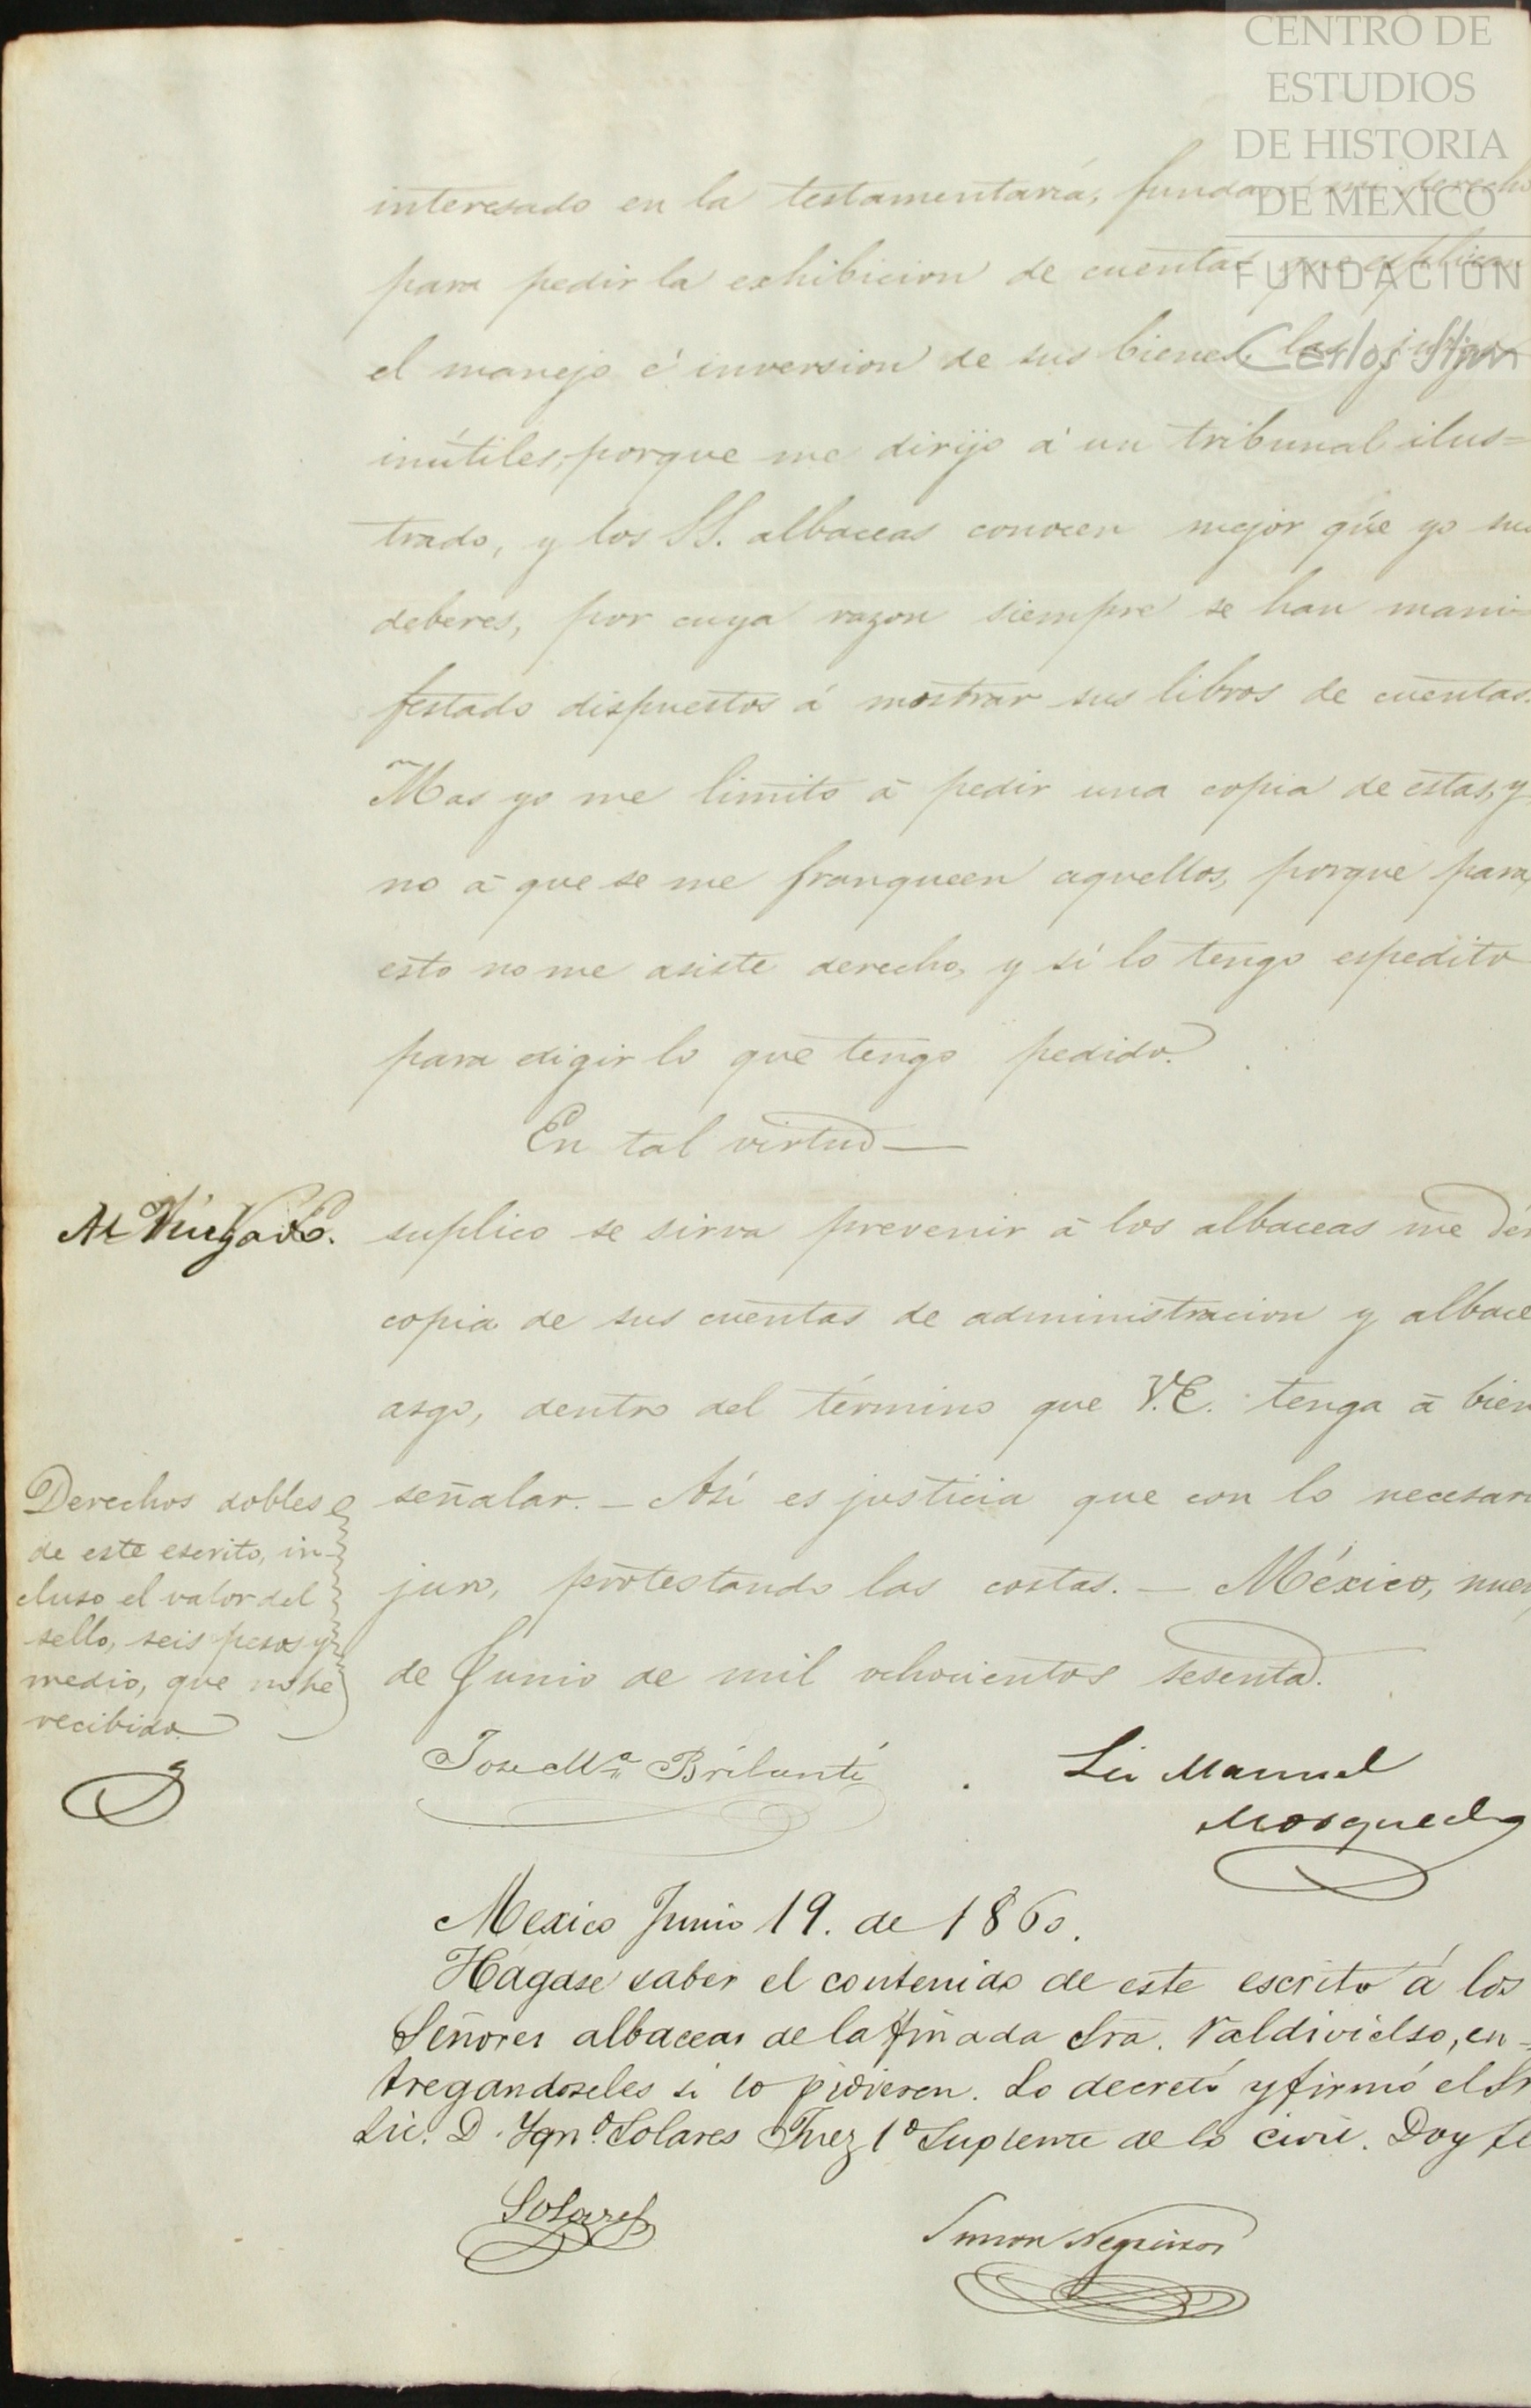 CENTRO DE
ESTUDIOS
DE HISTORIA
DE MÉXICO
FUNDACIÓN
Carlos Slim
interesado en la testamentaría, derecho
para pedir la exhibicion de cuentas que esplican
el manejo é inversion de sus bienes, las juzgo
inútiles, porque me dirijo á un tribunal ilus=
trado, y los SS. albaceas conocen mejor que yo sus
deberes, por cuya razon siempre se han mani=
festado dispuestos á mostrar sus libros de cuentas.
Mas yo me limito á pedir una copia de estas, y
no á que se me franqueen aquellos, porque para
esto no me asiste derecho, y sí lo tengo espedito
para exigir lo que tengo pedido.
En tal virtud—
Al Juzgado.
suplico se sirva prevenir á los albaceas me dén
copia de sus cuentas de administracion y albace
asgo, dentro del término que V.E. tenga á bien
señalar. — Así es justicia que con lo necesari
juro, protestando las costas. — México, nuev
de Junio de mil ochocientos sesenta.
Derechos dobles
de este escrito, in-
cluso el valor del
sello, seis pesos y
medio, que no he
recibido.
José Ma. Brilanti
Lic Manuel
Mosqueda
Mexico Junio 19. de 1860.
Hágase saber el contenido de este escrito á los
Señores albaceas de la finada Sra. Valdivielso, en=
tregandoseles si lo pidieren. Lo decretó y firmó el Sr
Lic. D. Ygno. Solares Juez 1º Suplente de lo civil. Doy fe
Solares
Simon Negreiros